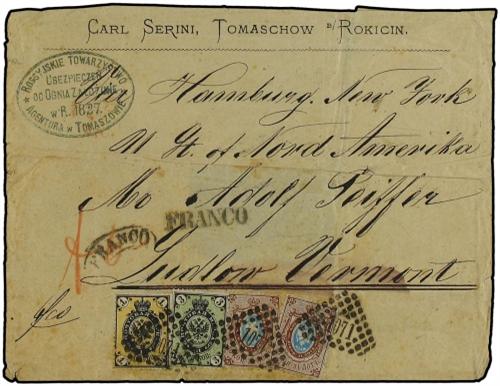 CARL SERINI, TOMASCHOW B/ROKICIN.
ROSSYJSKIE TOWARZYSTWO
UBEZPIECZEŃ
OD OGNIA ZAŁOŻONE
W R. 1827.
AGENTURA W TOMASZOWIE
Hamburg. New York
U St. of Nord Amerika
Mr Adolf Peiffer
FRANCO
FRANCO
Ludlow Vermont
1 1
3 3
1071